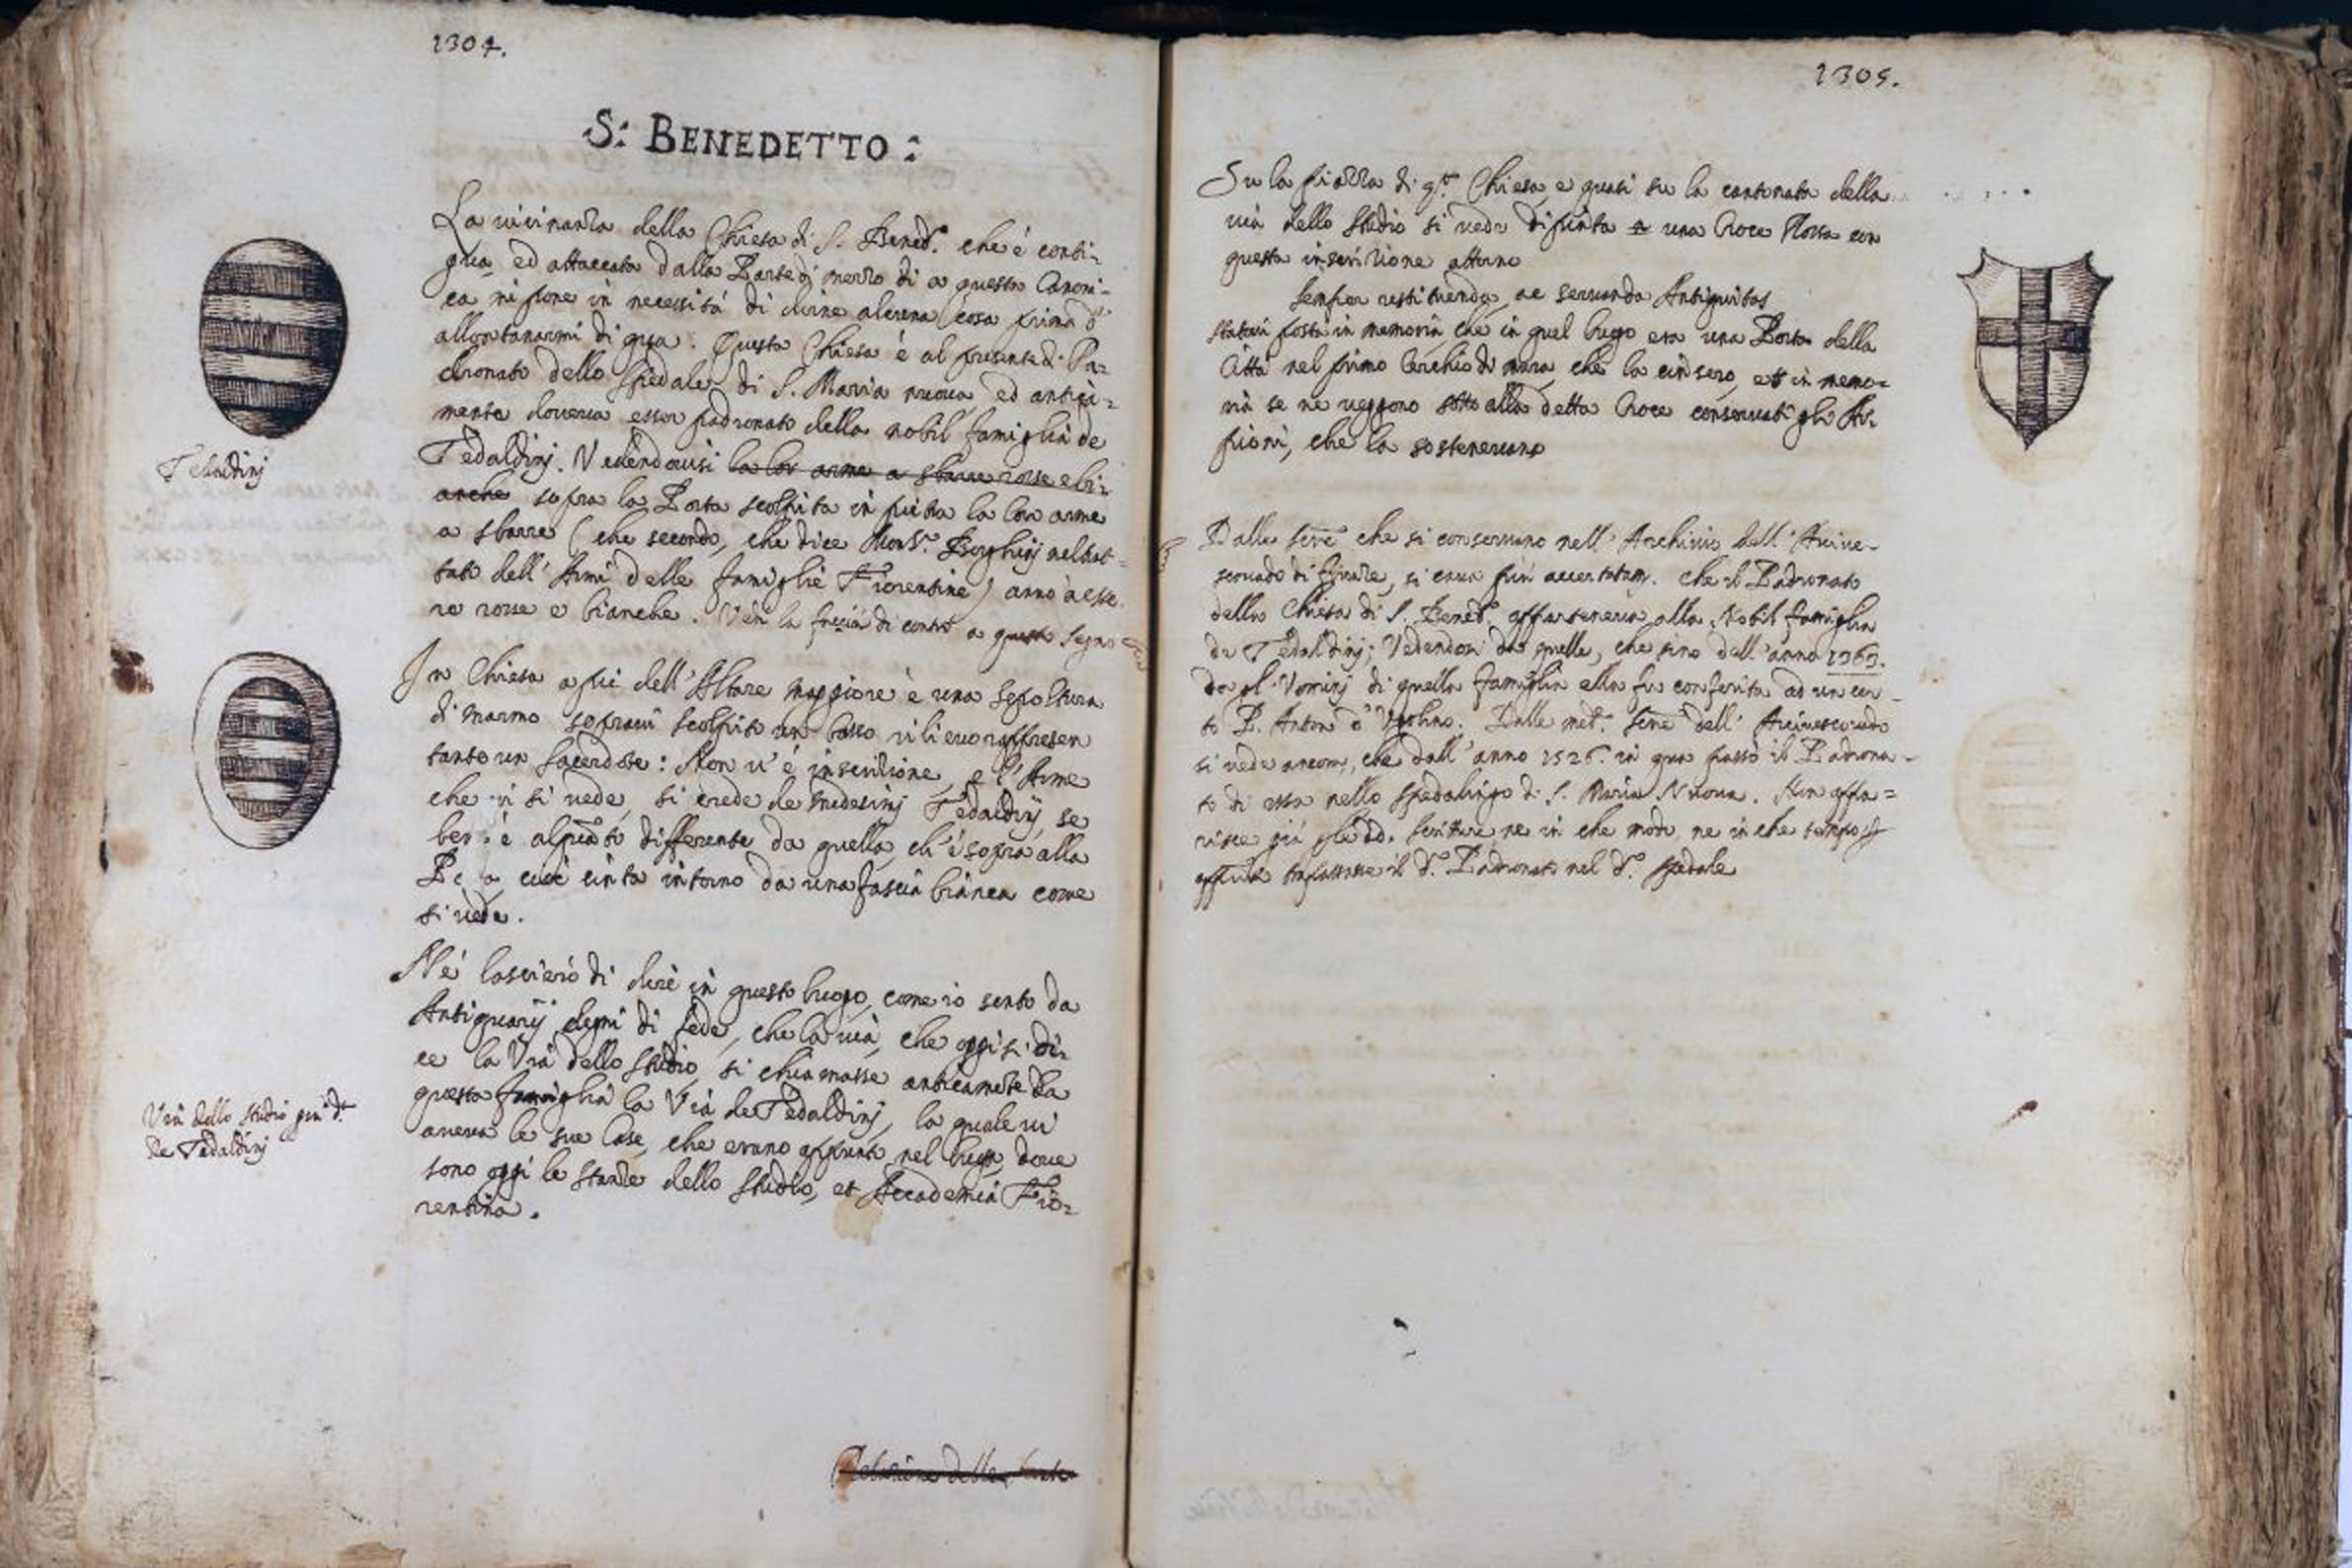 1304.
S: BENEDETTO:
La vicinanza della Chiesa di S. Bened.º che è conti-
gua, ed attaccata dalla Parte di mezzo dì a questa Canoni-
ca mi pone in necessità di dirne alcuna cosa prima d'
allontanarmi di qua. Questa Chiesa è al presente di Pa-
dronato dello Spedale di S. Maria nuova, ed antica-
mente doveva esser padronato della nobil famiglia de
Tedaldinj. Vedendovisi la lor arme a sbarre rosse e bi-
anche sopra la Porta scolpita in pietra la lor arme
a sbarre (che secondo, che dice Mons.r Borghinj nel trat-
tato dell'Armi delle famiglie Fiorentine) anno à esse
re rosse e bianche. Vedi la faccia di contro a questo segno
Tebaldinj
In Chiesa a piè dell'Altare maggiore è una sepoltura
di marmo sopravi scolpito un basso rilievo rappresen
tante un sacerdote: Non v'è inscrizione, e l'Arme
che vi si vede, si crede de medesimj Tedaldinj, se
ben è alquanto differente da quella, ch'è sopra alla
Po a cioè cinta intorno da una fascia bianca come
si vede.
Nè lascierò di dire in questo luogo, come io sento da
Antiquarij degni di fede, che la via, che oggi si di-
ce la Via dello Studio, si chiamasse anticamente da
questa famiglia la Via de Tedaldinj, la quale vi
aveva le sue Case, che erano appunto nel luogo, dove
sono oggi le stanze dello Studio, et Accademia Fio-
rentina.
Via dello Studio già d.ª
de Tedaldinj
Relazione delle
1305.
Su la piazza di q.ta Chiesa, e quasi su la cantonata della
via dello Studio si vede dipinta una Croce Rossa con
questa inscrizione attorno
Semper restituenda, ac servanda Antiquitas
statavi posta in memoria, che in quel luogo era una Porta della
Città nel primo Cerchio di mura, che la cinsero, et in memo-
ria se ne veggono sotto alla detta Croce conservati gli Ar-
pioni, che la sostenevano
Dalle scre che si conservano nell'Archivio dell'Arcive-
scovado di firenze, si cava più accertatam. che il Padronato
della Chiesa di S. Bened.º apparteneva alla Nobil famiglia
de Tedaldinj; Vedendosi da quelle, che sino dell'anno 1363.
da gl'Vominj di quella famiglia ella fu conferita ad un cer-
to P. Anton d'Ugolino. Dalle med.e scre dell'Arcivescovado
si vede ancora, che dall'anno 1526. in qua passò il Padrona-
to di essa nello Spedalingo di S. Maria Nuova. Non appa-
risce già p le dd. scritture, ne in che modo, ne in che tempo
trapassasse il d.º Padronato nel d.º spedale